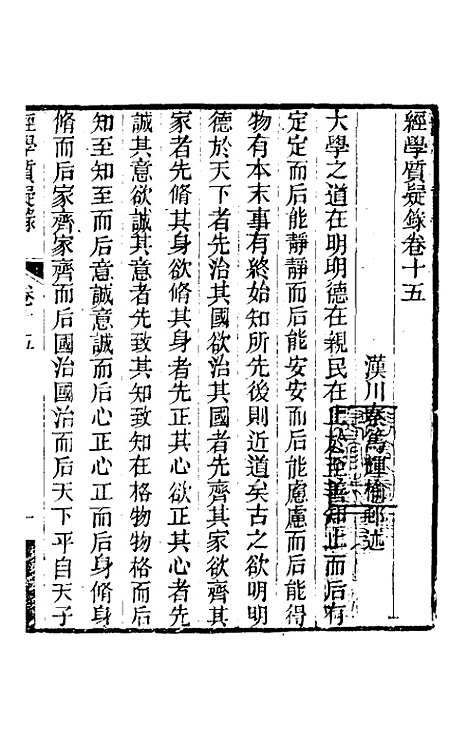 經學質疑錄卷十五
漢川秦篤輝榆邨述
大學之道在明明德在親民在止於至善知止而后有
定定而后能靜靜而后能安安而后能慮慮而后能得
物有本末事有終始知所先後則近道矣古之欲明明
德於天下者先治其國欲治其國者先齊其家欲齊其
家者先脩其身欲脩其身者先正其心欲正其心者先
誠其意欲誠其意者先致其知致知在格物物格而后
知至知至而后意誠意誠而后心正心正而后身脩身
脩而后家齊家齊而后國治國治而后天下平自天子
經學質疑錄 卷十五 一